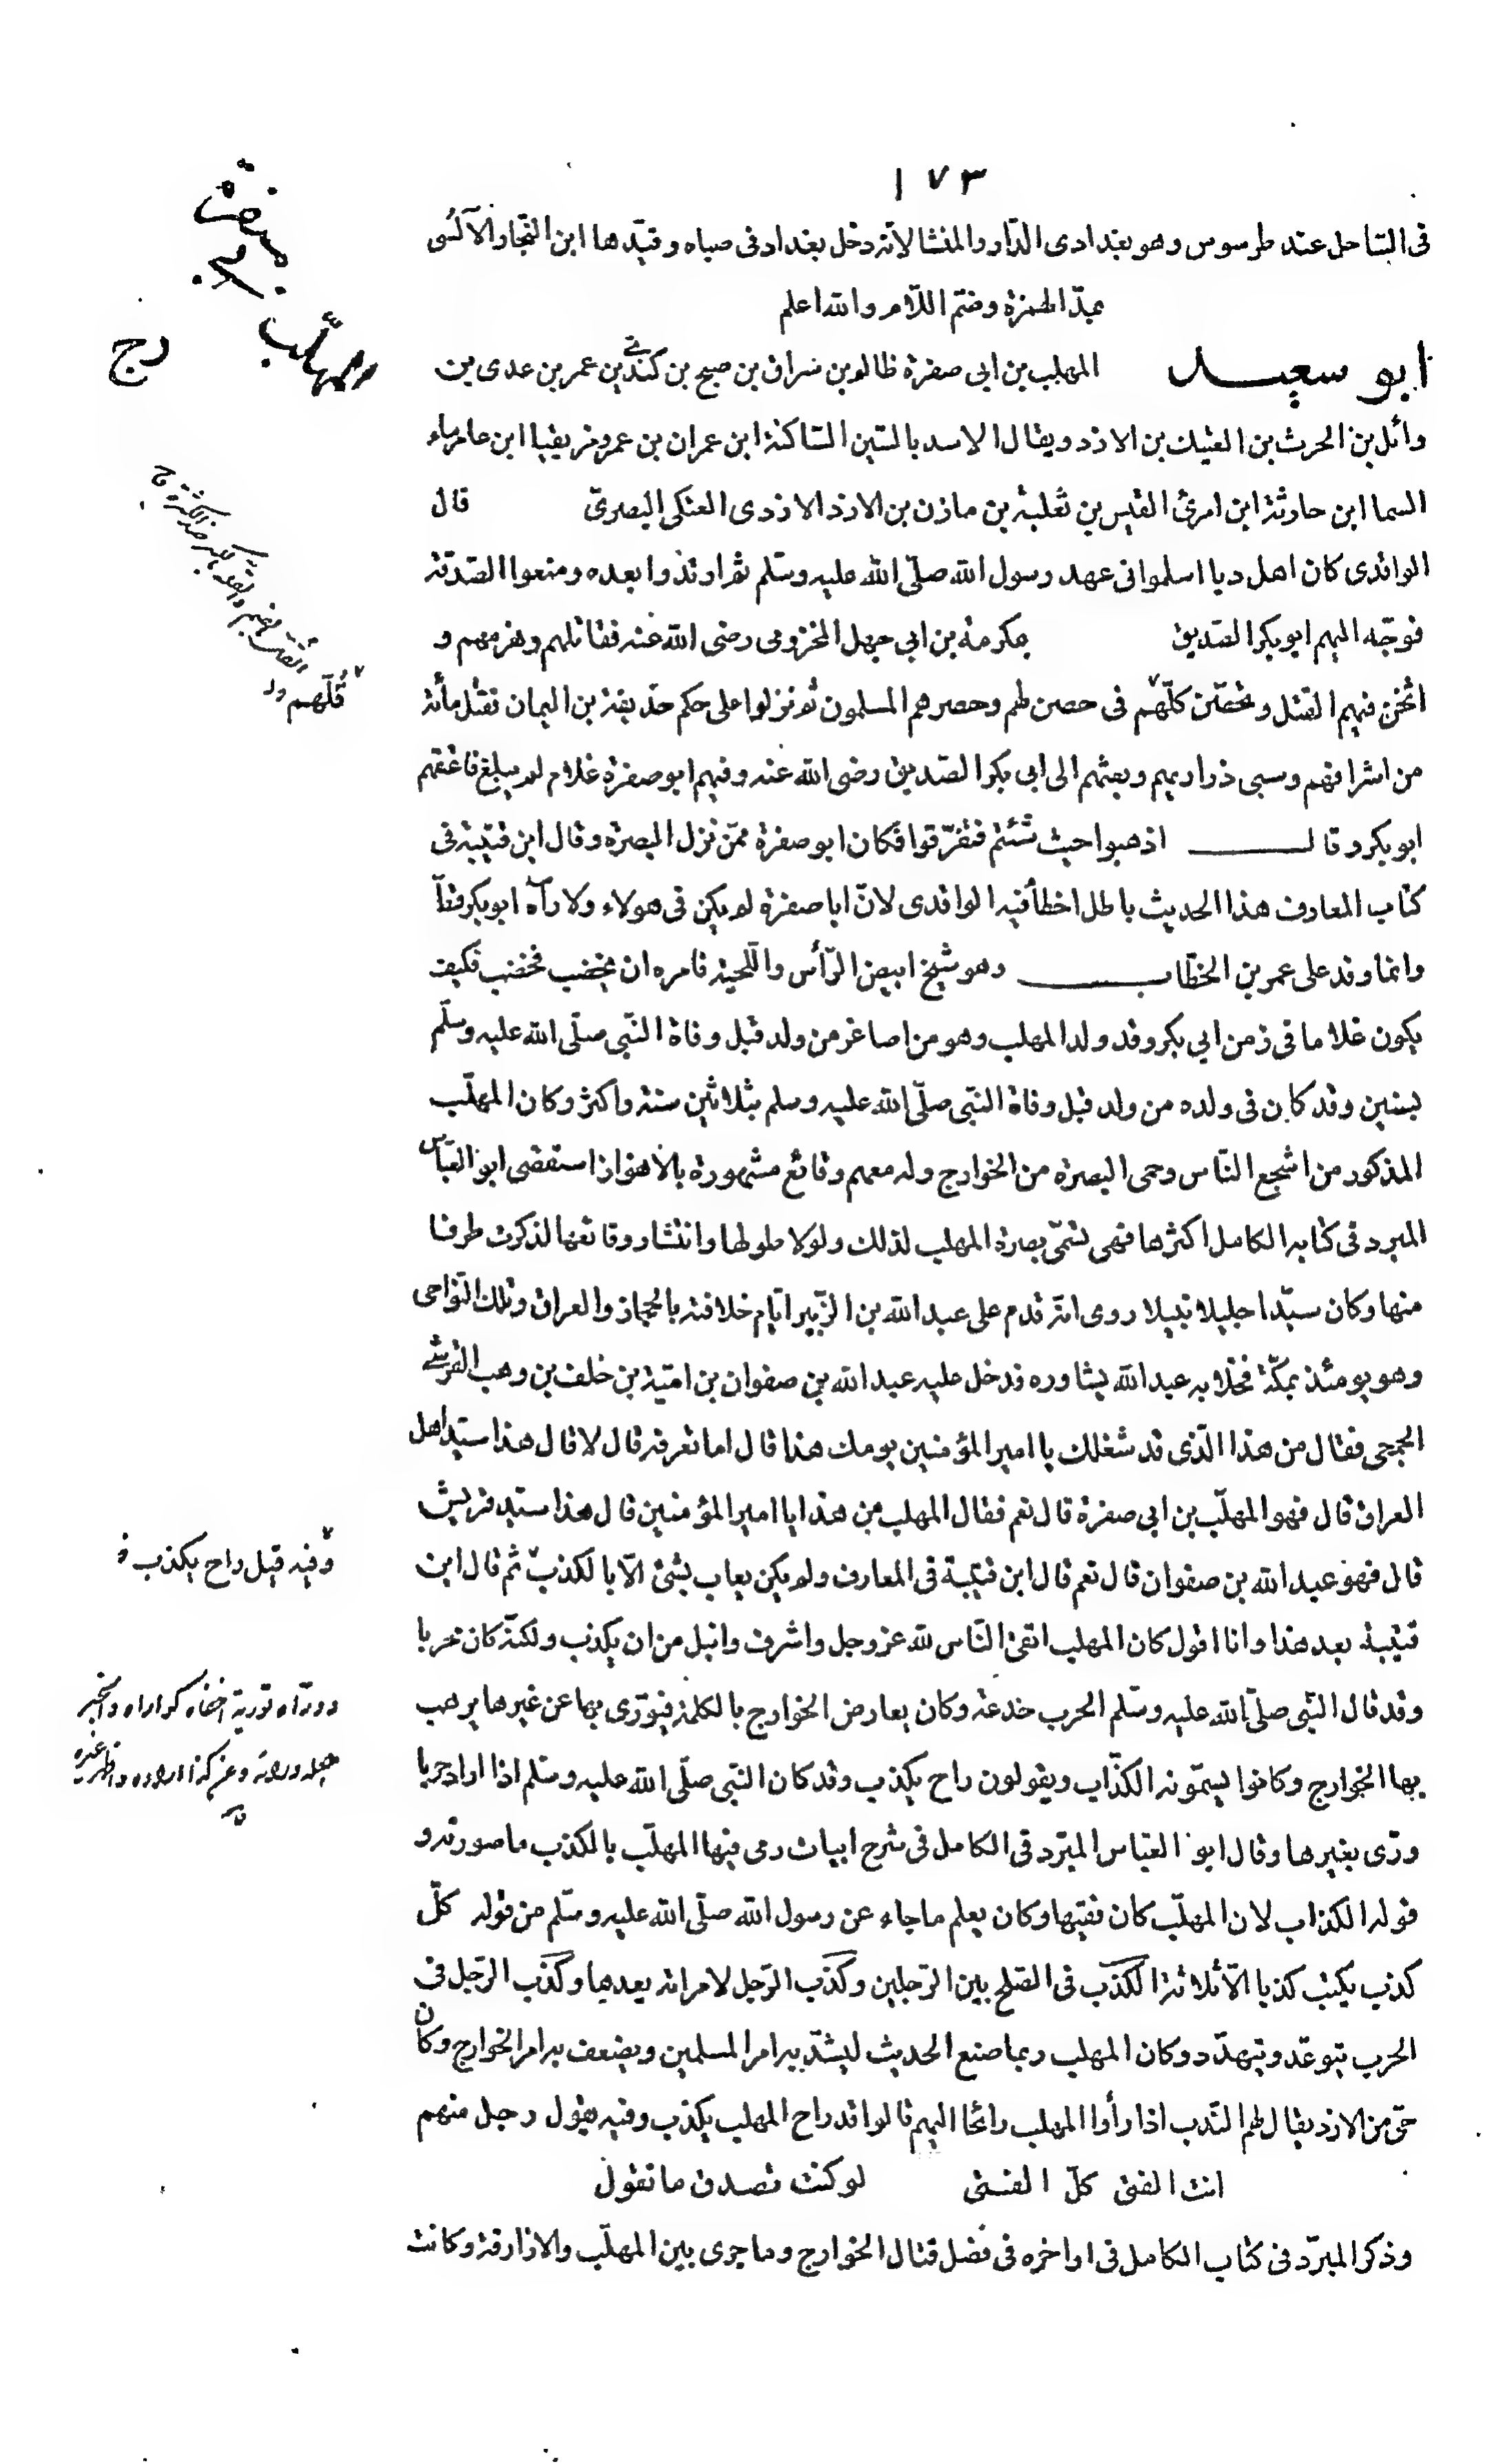 ١٧٣
فى السّاحل عند طرسوس وهو بغدادى الدّار والمنشا لانّه دخل بغداد فى صباه وقيّدها ابن النجّار الآلُسى
بمدّ الهمزة وضمّ اللّام والله اعلم
ابو سعيد المهلب بن ابى صفرة ظالم بن سراق بن صبح بن كندى بن عمر بن عدى بن
وائل بن الحرث بن العتيك بن الازد ويقال الاسد بالسّين السّاكنة ابن عمران بن عمرو مزيقيا ابن عامر ماء
السما ابن حارثة ابن امرئ القيس بن ثعلبة بن مازن بن الازد الازدى العتكى البصرىّ قال
الواقدى كان اهل دبا اسلموا فى عهد رسول الله صلّى الله عليه وسلّم ثم ارتدّوا بعده ومنعوا الصّدقة
فوجّه اليهم ابو بكر الصّديق عكرمة بن ابى جهل المخزومى رضى الله عنه فقاتلهم وهزمهم و
اثخن فيهم القتل وتحصّن كلّهم فى حصن لهم وحصرهم المسلمون ثم نزلوا على حكم حذيفة بن اليمان فقتل مأئة
من اشرافهم وسبى ذراريهم وبعثهم الى ابى بكر الصّديق رضى الله عنه وفيهم ابو صفرة غلام لم يبلغ فاعتقهم
ابو بكر وقال اذهبوا حيث شئتم فتفرّقوا فكان ابو صفرة ممّن نزل البصرة وقال ابن قتيبة فى
كتاب المعارف هذا الحديث باطل اخطأ فيه الواقدى لانّ ابا صفرة لم يكن فى هولاء ولا رآه ابو بكر قطّ
وانما وفد على عمر بن الخطّاب وهو شيخ ابيض الرّأس واللّحية فامره ان يخضب فخضب فكيف
يكون غلاما فى زمن ابي بكر وقد ولد المهلب وهو من اصاغر من ولد قبل وفاة النّبى صلّى الله عليه وسلّم
بسنين وقد كان فى ولده من ولد قبل وفاة النّبى صلّى الله عليه وسلم بثلاثين سنة واكثر وكان المهلّب
المذكور من اشجع النّاس وحمى البصرة من الخوارج وله معهم وقائع مشهورة بالاهواز استقضى ابو العبّاس
المبرد فى كتابه الكامل اكثرها فهى تسمّى بصرة المهلب لذلك ولولا طولها وانتشار وقائعها لذكرت طرفا
منها وكان سيّدا جليلا نبيلا روى انّه قدم على عبد الله بن الزّبير ايّام خلافته بالحجاز والعراق وتلك النّواحى
وهو يومئذ بمكّة فخلا به عبد الله يشاوره فدخل عليه عبد الله بن صفوان بن اميّة بن خلف بن وهب القرشى
الجمحى فقال من هذا الّذى قد شغلك يا امير المؤمنين يومك هذا قال اما تعرفه قال لا قال هذا سيّد اهل
العراق قال فهو المهلّب بن ابى صفرة قال نعم فقال المهلب من هذا يا امير المؤمنين قال هذا سيّد قريش
قال فهو عبد الله بن صفوان قال نعم قال ابن قتيبة فى المعارف ولم يكن يعاب بشئ الّا بالكذب ثم قال ابن
قتيبة بعد هذا وانا اقول كان المهلب اتقى النّاس لله عز وجل واشرف وانبل من ان يكذب ولكنّه كان حربا
وقد قال النّبى صلّى الله عليه وسلّم الحرب خدعة وكان يعارض الخوارج بالكلمة فيورّى بها عن غيرها يرهب
بها الخوارج وكانوا يسمّونه الكذّاب ويقولون راح يكذب وقد كان النّبى صلّى الله عليه وسلّم اذا اراد حربا
ورّى بغيرها وقال ابو العبّاس المبرّد فى الكامل فى شرح ابيات رمى فيها المهلّب بالكذب ما صورته و
قوله الكذاب لان المهلّب كان فقيها وكان يعلم ما جاء عن رسول الله صلّى الله عليه وسلّم من قوله كلّ
كذب يكتب كذبا الّا ثلاثة الكذب فى الصّلح بين الرّجلين وكذب الرّجل لامراته يعدها وكذب الرّجل فى
الحرب يتوعّد ويتهدّد وكان المهلب ربما صنع الحديث ليشدّ به امر المسلمين ويضعف به امر الخوارج وكان
حىّ من الازد يقال لهم النّدب اذا رأوا المهلب رائحا اليهم قالوا قد راح المهلب يكذب وفيه يقول رجل منهم
انت الفتى كلّ الفتى لو كنت تصدق ما تقول
وذكر المبرّد فى كتاب الكامل فى اواخره فى فضل قتال الخوارج وما جرى بين المهلّب والازارقة وكانت
المهلّب
رج
فُلّهم
وفيه قيل راح يكذب